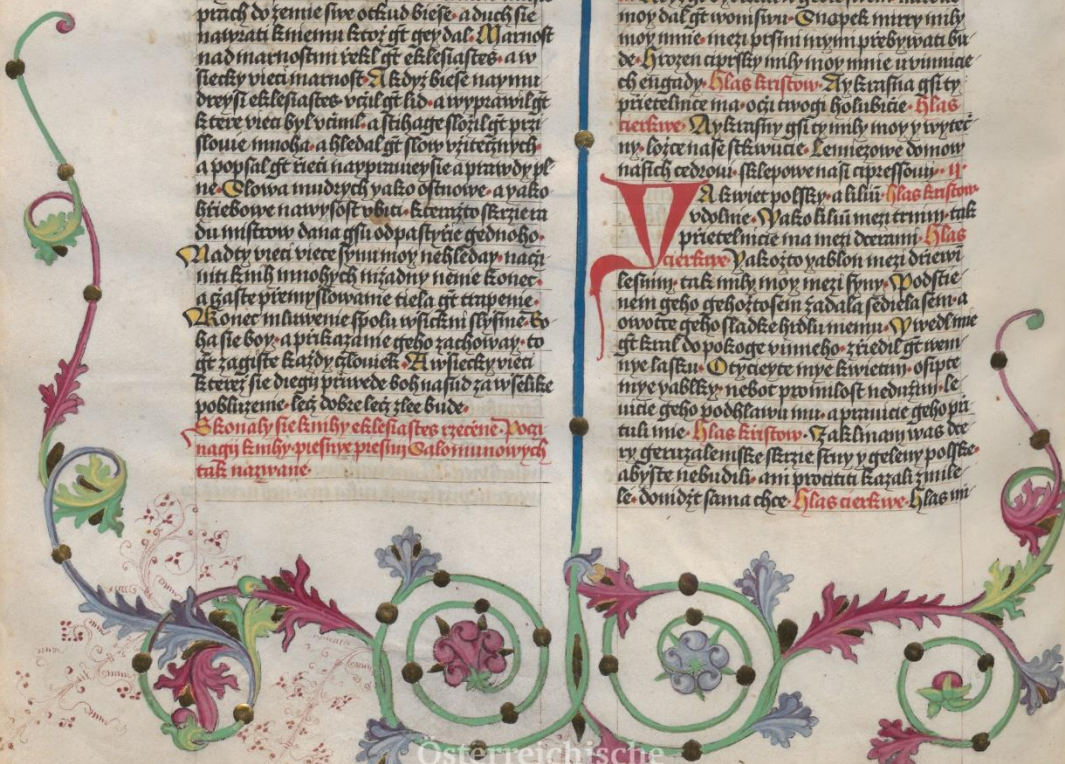 prach do zemie swe ockud biese· a duch sie
nawrati k niemu ktoz gt gey dal· Marnost
nad marnostmi rzekl gt eklesiastes· a w
siecky vieci marnost· A kdyz biese nay mu
dreysi eklesiastes· vczil gt lid· a wyprawil gt
ktere vieci byl vczinil· a stihage slozil gt przi
slowie mnoha· a hledal gt slow vzitecznych·
a popsal gt rzieci nayprawieysie a prawdy pl
ne· Slowa mudrych yako ostnowe· a yako
hrziebowe na wysost vbici· kterazto skrzie ra
du mistrow dana gsu od pastyrzie gednoho·
Nad ty vieci viece synu moy nehleday· nacži
niti knih mnohych nizadny nenie konec·
a czaste przemyslowanie tiela gt trapenie·
Konec mluwenie spolu wsickni slysme· Bo
ha sie boy· a przikazanie geho zachoway· to
gt zagiste kazdy czloviek· A wsiecky vieci
kterez sie diegij priwede boh na sud za wselike
poblúzenie· lecz dobre lecz zlee bude·
Skonaly sie knihy eklesiastes rzecene· Poczi
nagij knihy· piesnye piesnij Salomunowych
tak nazwane·
moy dal gt woni swu· Snapek mirry mily
moy mnie· mezi prsmi mymi przebywati bu
de· Hrozen ciprsky mily moy mnie u vinnicie
ch engady· Hlas kristow· Ay krasna gsi ty
przietelnice ma· oczi twogi holubicie· Hlas
cierkwe· Ay krasny gsi ty mily moy y wytecz
ny· lozce nase stkwucie· Lemiezowe domow
nasich cedrowi· sklepowe nasi cipressowy· ij·
Ja kwiet polsky· a lilium Hlas kristow·
v dolnie· Yako lilium mezi trnim· tak
prietelnicie ma mezi dcerami· Hlas
cierkwe· Yakozto yablon mezi drziewi
lesnim· tak mily moy mezi syny· Pod stie
nem geho gehoztosem zadala sediela sem· a
owotce geho sladke hrdlu memu· Uwedl mie
gt kral do pokoge vinneho· zrziedil gt we mi
nye lasku· Otycieyte mye kwietim· osipte
mye yablky· nebot pro milost neduzim· le
vicie geho pod hlawu mu· a prawicie geho pri
tuli mie· Hlas kristow· Zaklinam was dce
ry geruzalemske skrzie srny y geleny polske·
abyste nebudili· ani procititi kazali zmile
le· donidz sama chce· Hlas cierkwe· Hlas mi
Österreichische